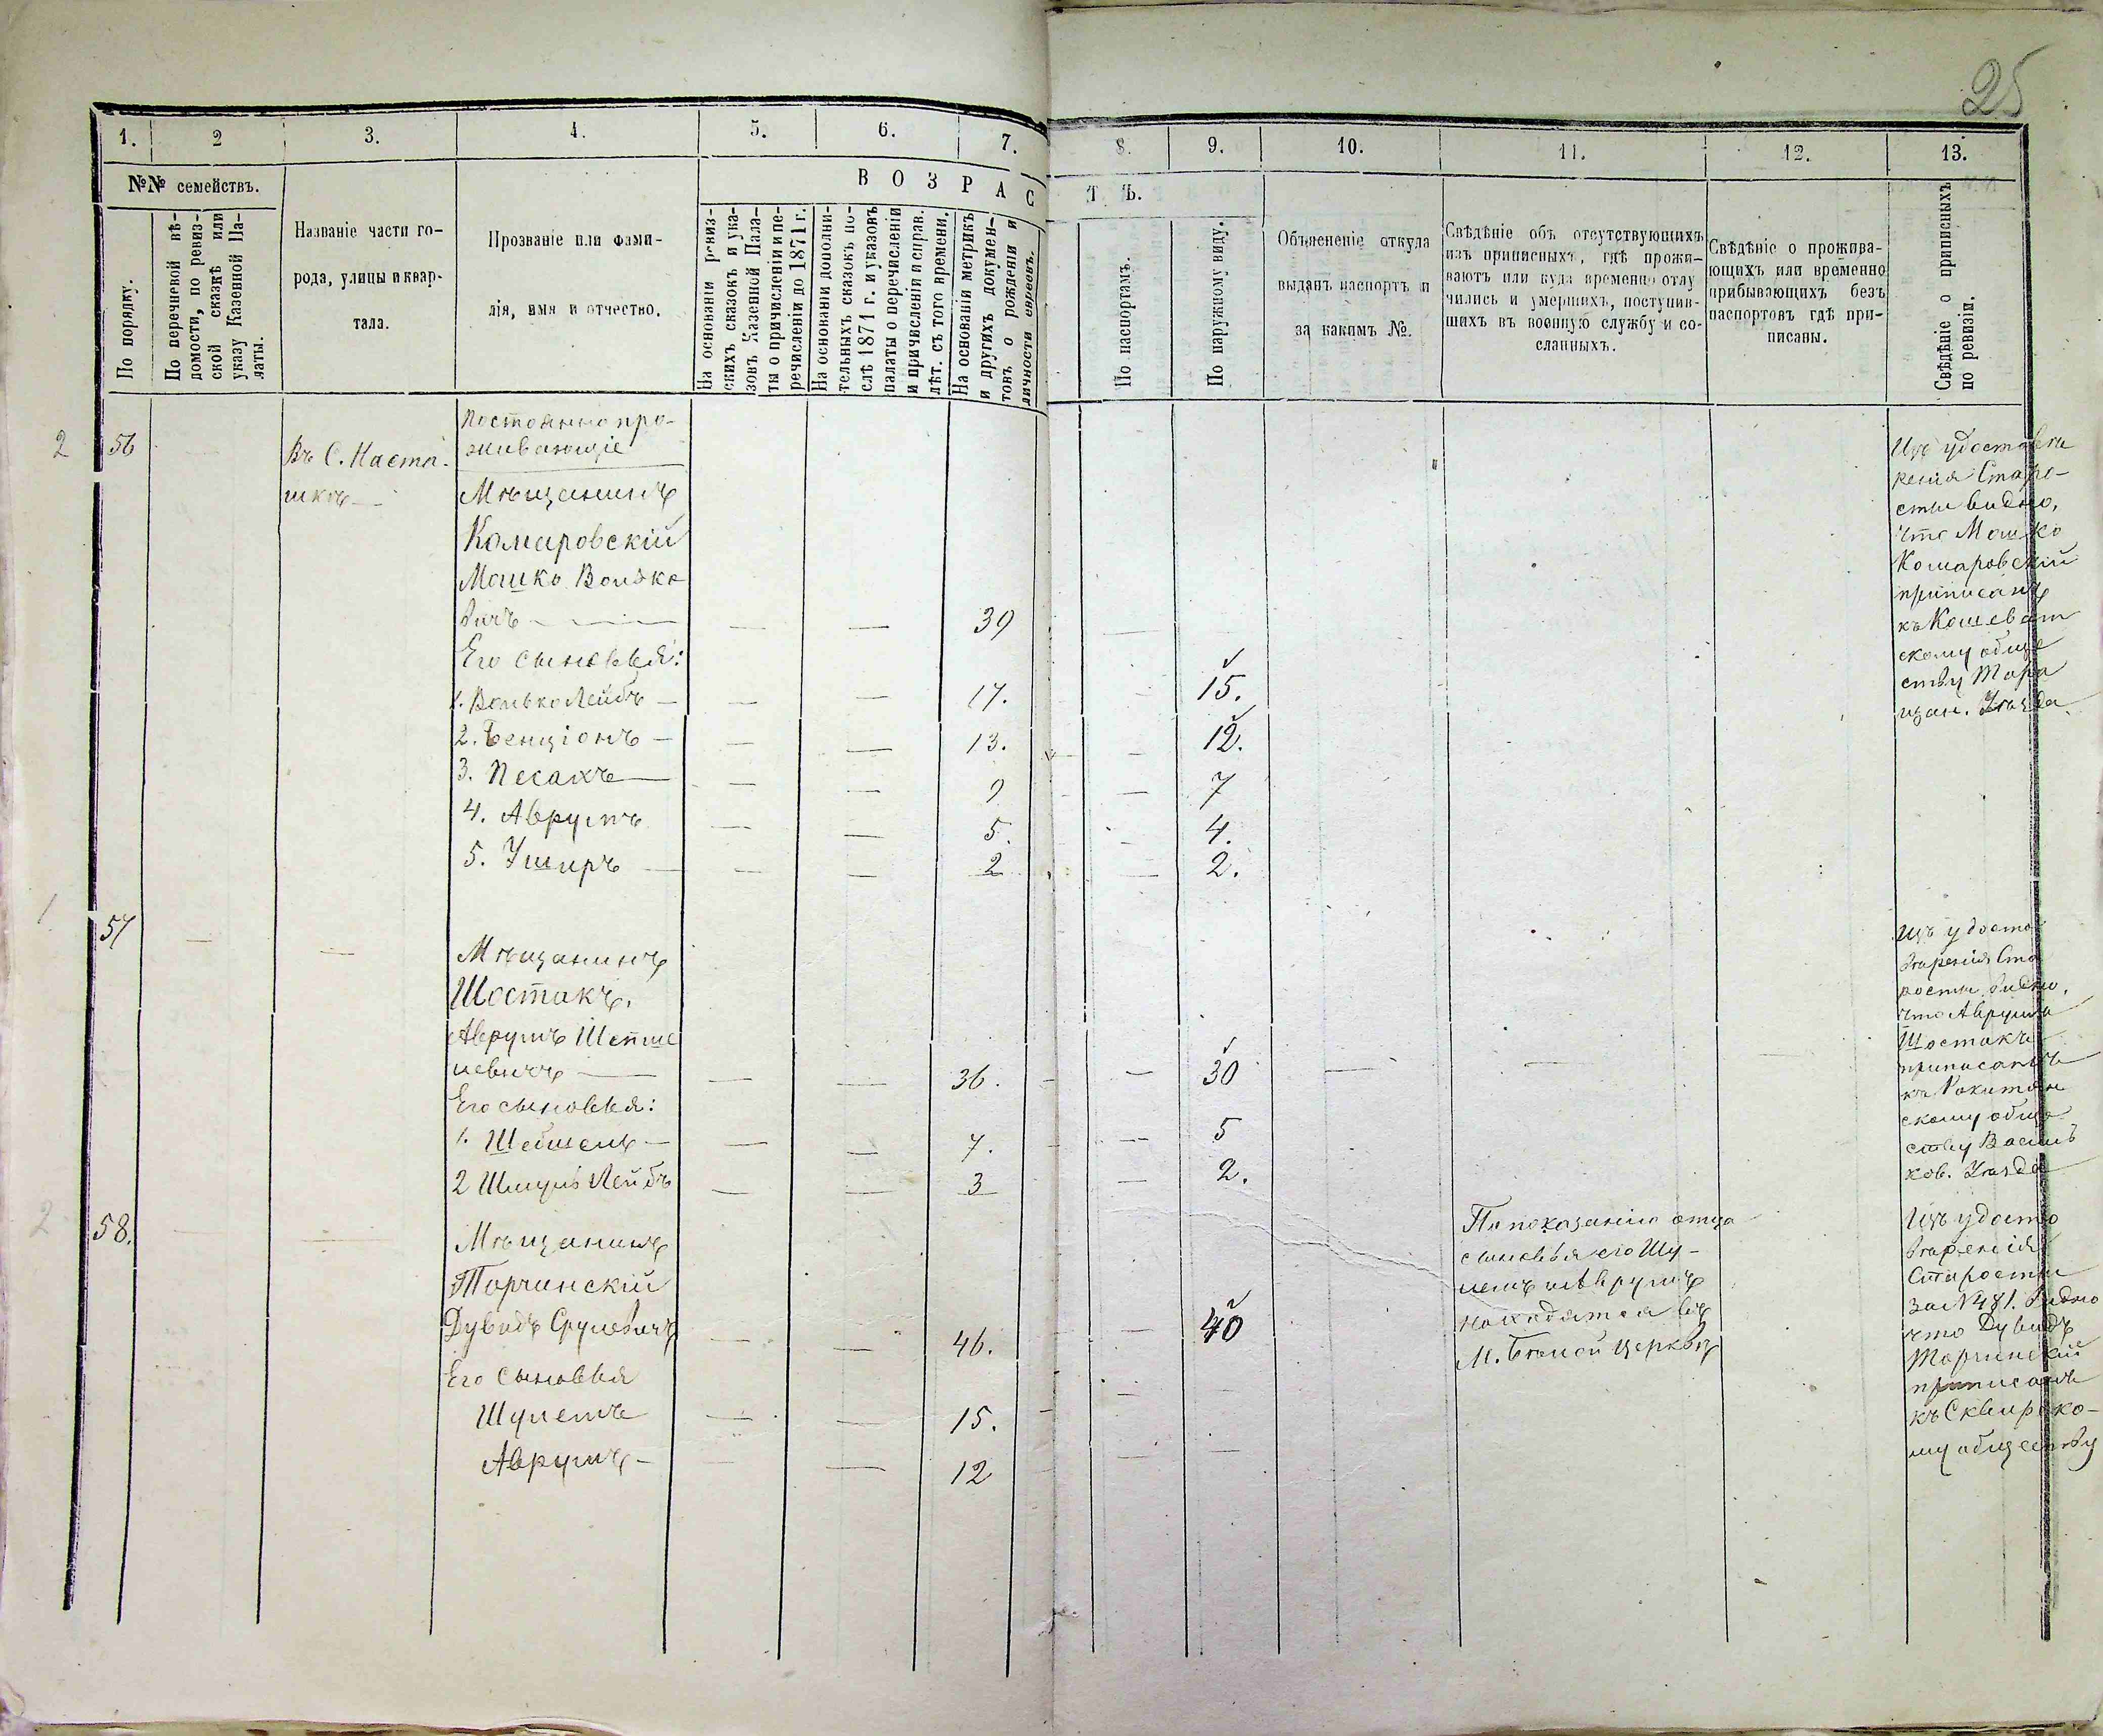 25
1. 2 3. 4. 5. 6. 7. 8. 9. 10. 11. 12. 13.
№№ семействъ.
По порядку.
По перечневой вѣ-
домости, по ревиз-
ской сказкѣ или
указу Казенной Па-
латы.
Названіе части го-
рода, улицы и квар-
тала.
Прозваніе или фами-
лія, имя и отчество.
ВОЗРАСТЪ.
На основаніи ревиз-
скихъ сказокъ и ука-
зовъ Казенной Пала-
ты о причисленіи и пе-
речисленіи до 1871 г.
На основаніи дополни-
тельныхъ сказокъ по-
слѣ 1871 г. и указовъ
палаты о перечисленіи
и причисленіи и справ.
лѣт. съ того времени.
На основаніи метрикъ
и другихъ докумен-
товъ о рожденіи и
личности евреевъ.
По паспортамъ.
По наружному виду.
Объясненіе откуда
выданъ паспортъ и
за какимъ №.
Свѣдѣніе объ отсутствующихъ
изъ приписныхъ, гдѣ прожи-
ваютъ или куда временно отлу
чились и умершихъ, поступив-
шихъ въ военную службу и со-
сланныхъ.
Свѣдѣніе о прожива-
ющихъ или временно
прибывающихъ безъ
паспортовъ гдѣ при-
писаны.
Свѣдѣніе о приписныхъ
по ревизіи.
2 56
Въ С. Наста-
шкѣ —
Постоянно про-
живающіе
Мѣщанинъ
Комаровскій
Мошко Волько
вичъ — 39
Его сыновья:
1. Волько Лейбъ — 17. 15.
2. Бенціонъ — 13. 12.
3. Песахъ — 9 7
4. Аврумъ 5. 4.
5. Уширъ — 2 2.
Изъ удостовѣ
ренія Старо-
сты видно,
что Мошко
Комаровскій
приписанъ
къ Кошеват
скому обще
ству Тара
щан. Уѣзда
1 57
Мѣщанинъ
Шостакъ.
Аврумъ Шепше
левичъ — 36. 30
Его сыновья:
1. Шебшель — 7. 5
2 Шмуль Лейбъ 3 2.
Изъ удосто
вѣренія Ста
росты видно,
что Аврумъ
Шостакъ
приписанъ
къ Рокитян
скому обще
ству Василь
ков. Уѣзда
2 58.
Мѣщанинъ
Торчинскій
Дувидъ Срулевичъ 46. 40
Его сыновья
Шулемъ 15.
Аврумъ — 12
По показанію отца
сыновья его Шу-
лемъ и Аврумъ
находятся въ
М. Бѣлой Церквѣ
Изъ удосто
вѣренія
Старосты
за №481. видно
что Дувидъ
Торчинскій
приписанъ
къ Сквирско-
му обществу